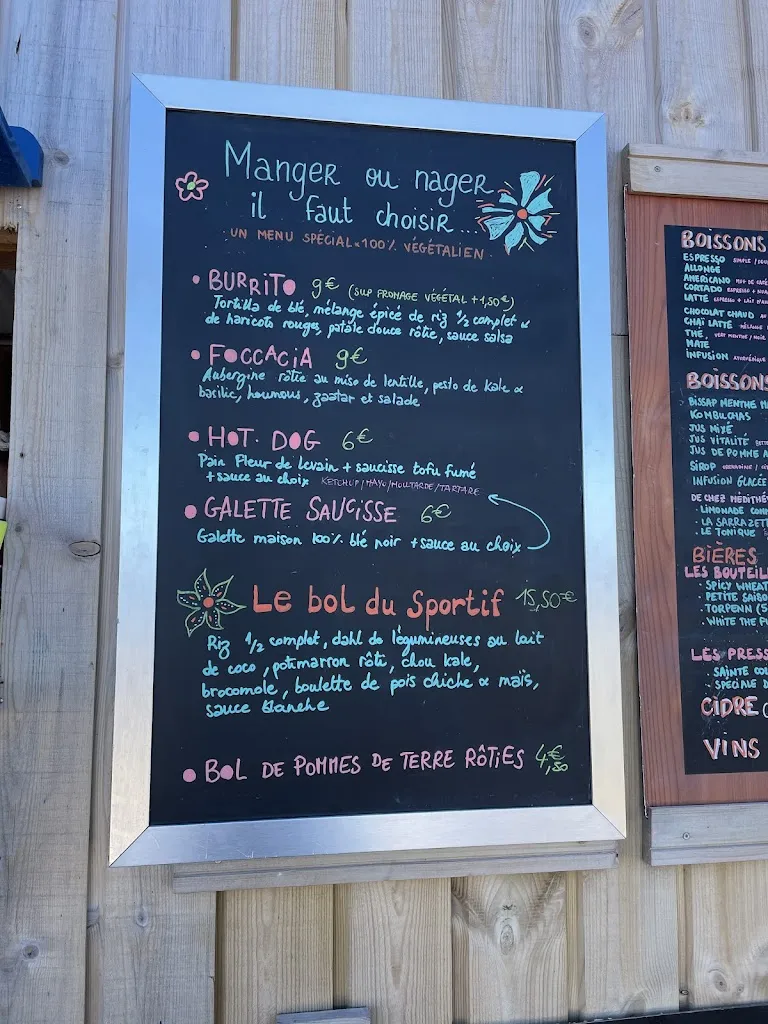 Manger ou nager
il faut choisir...
UN MENU SPÉCIAL "100% VÉGÉTALIEN"
• BURRITO 9€ (SUP FROMAGE VÉGÉTAL +1,50€)
Tortilla de blé, mélange épicé de riz 1/2 complet &
de haricots rouges, patate douce rôtie, sauce salsa
• FOCCACIA 9€
Aubergine rôtie au miso de lentille, pesto de kale &
basilic, houmous, zaatar et salade
• HOT. DOG 6€
Pain Fleur de levain + saucisse tofu fumé
+ sauce au choix KETCHUP/MAYO/MOUTARDE/TARTARE
• GALETTE SAUCISSE 6€
Galette maison 100% blé noir + sauce au choix
Le bol du Sportif 15,50€
Riz 1/2 complet, dahl de légumineuses au lait
de coco, potimarron rôti, chou kale,
brocomole, boulette de pois chiche & maïs,
sauce blanche
• BOL DE POMMES DE TERRE RÔTIES 4€,50
BOISSONS
ESPRESSO SIMPLE
ALLONGÉ
AMERICANO
CORTADO
LATTE
CHOCOLAT CHAUD
CHAÏ LATTE
THÉ,
MATE
INFUSION
BOISSONS
BISSAP MENTHE
KOMBUCHAS
JUS MIXÉ
JUS VITALITÉ
JUS DE POMME
SIROP
INFUSION GLACÉE
DE CHEZ
. LIMONADE
. LA
. LE TONIQUE
BIÈRES
LES BOUTEIL
. SPICY WHEAT
. PETITE
. TORPENN (5
. WHITE THE
LES PRESS
. SAINTE
. SPECIALE
CIDRE
VINS